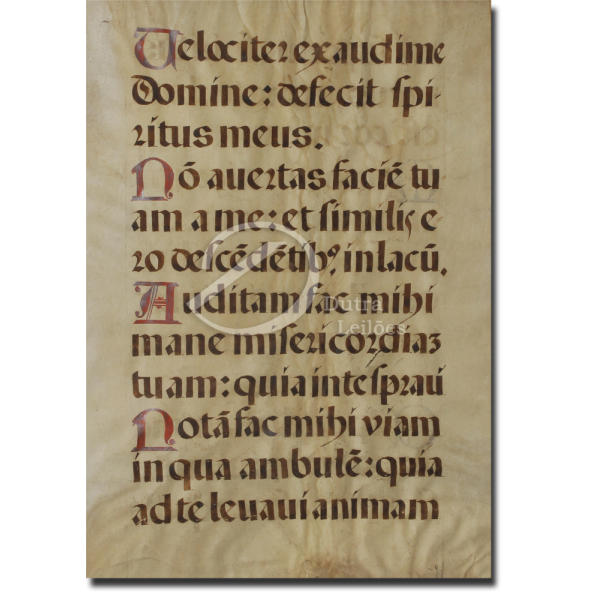 Velociter exaudi me
Domine: defecit spi-
ritus meus.
Nō auertas faciē tu
am a me: et similis e
ro descēdētibꝰ in lacū.
Auditam fac mihi
mane misericordiaꝫ
tuam: quia in te speraui
Notā fac mihi viam
in qua ambulē: quia
ad te leuaui animam
Dutra
Leilões